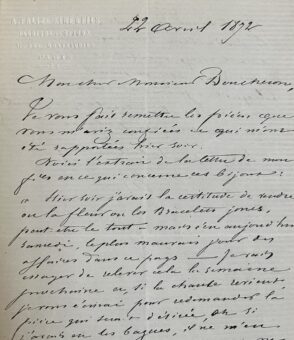 22 Avril 1872
Mon cher Monsieur Boucheron,
Je vous fais remettre les pièces que
vous m'aviez confiées et qui m'ont
été rapportées hier soir.
Voici l'extrait de la lettre de mon
fils en ce qui concerne ces bijoux:
" Hier soir j'avais la certitude de vendre
ou la fleur ou les Bracelets jonc,
peut être le tout - mais
samedi, le plus mauvais jour des
affaires dans ce pays - Je vais
essayer de relever cela la semaine
prochaine et, si la chance revient,
je vous écrirai pour redemander la
pièce qui sera désirée, Oh si
j'avais eu les bagues, il ne m'en